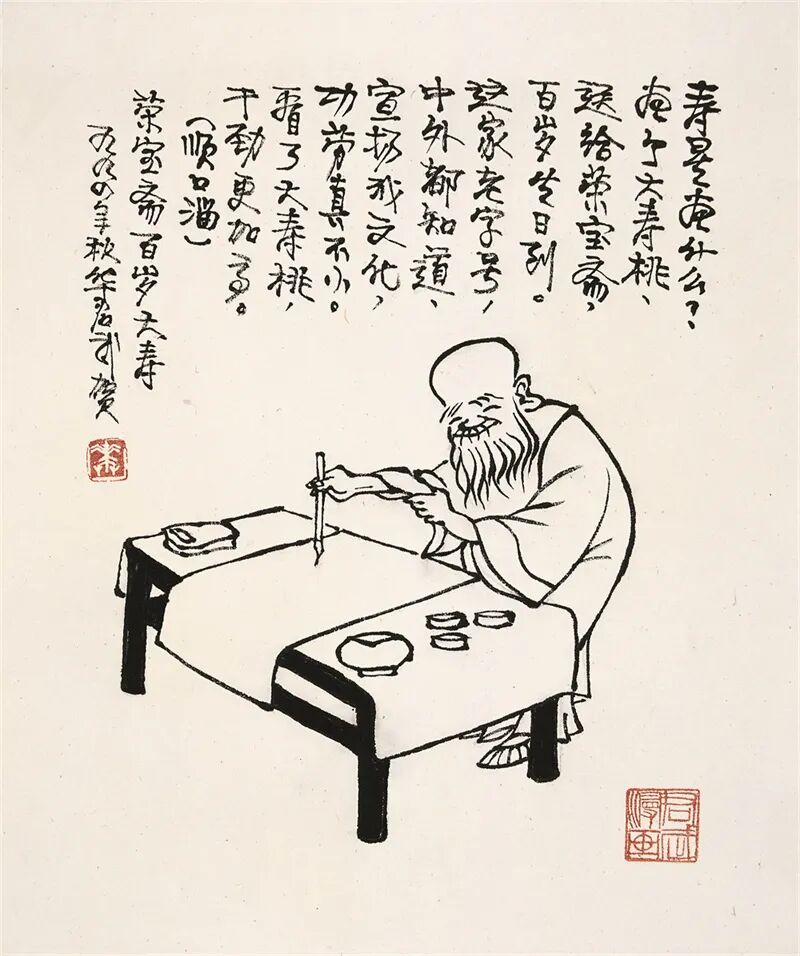 寿星画什么？
画个大寿桃、
送给荣宝斋，
百岁生日到。
这家老字号，
中外都知道、
宣扬我文化，
功劳真不小。
看了大寿桃，
干劲更加高。
（顺口溜）
荣宝斋百岁大寿
九九四年秋华君武贺
华
君武漫画